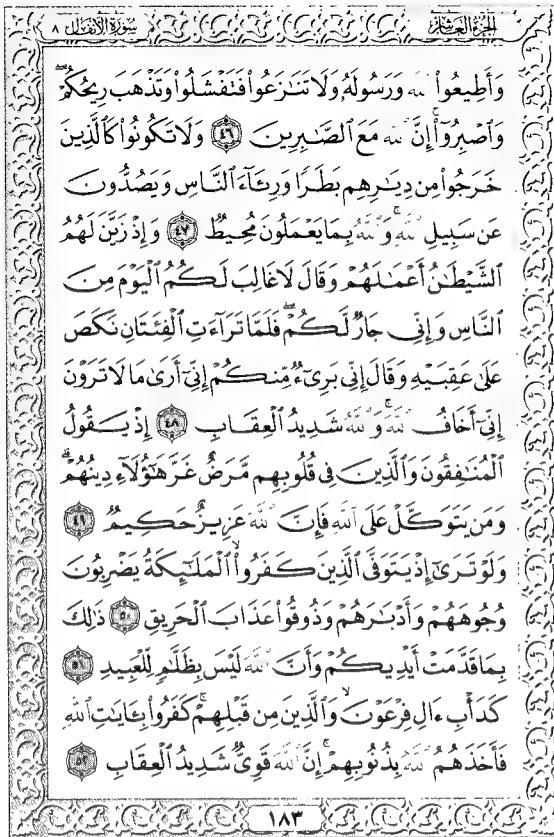 الجزء العاشر سورة الأنفال ٨
وَأَطِيعُوا۟ ٱللَّهَ وَرَسُولَهُۥ وَلَا تَنَـٰزَعُوا۟ فَتَفْشَلُوا۟ وَتَذْهَبَ رِيحُكُمْ ۖ
وَٱصْبِرُوٓا۟ ۚ إِنَّ ٱللَّهَ مَعَ ٱلصَّـٰبِرِينَ ٤٦ وَلَا تَكُونُوا۟ كَٱلَّذِينَ
خَرَجُوا۟ مِن دِيَـٰرِهِم بَطَرًا وَرِئَآءَ ٱلنَّاسِ وَيَصُدُّونَ
عَن سَبِيلِ ٱللَّهِ ۚ وَٱللَّهُ بِمَا يَعْمَلُونَ مُحِيطٌ ٤٧ وَإِذْ زَيَّنَ لَهُمُ
ٱلشَّيْطَـٰنُ أَعْمَـٰلَهُمْ وَقَالَ لَا غَالِبَ لَكُمُ ٱلْيَوْمَ مِنَ
ٱلنَّاسِ وَإِنِّى جَارٌ لَّكُمْ ۖ فَلَمَّا تَرَآءَتِ ٱلْفِئَتَانِ نَكَصَ
عَلَىٰ عَقِبَيْهِ وَقَالَ إِنِّى بَرِىٓءٌ مِّنكُمْ إِنِّىٓ أَرَىٰ مَا لَا تَرَوْنَ
إِنِّىٓ أَخَافُ ٱللَّهَ ۚ وَٱللَّهُ شَدِيدُ ٱلْعِقَابِ ٤٨ إِذْ يَقُولُ
ٱلْمُنَـٰفِقُونَ وَٱلَّذِينَ فِى قُلُوبِهِم مَّرَضٌ غَرَّ هَـٰٓؤُلَآءِ دِينُهُمْ ۗ
وَمَن يَتَوَكَّلْ عَلَى ٱللَّهِ فَإِنَّ ٱللَّهَ عَزِيزٌ حَكِيمٌ ٤٩
وَلَوْ تَرَىٰٓ إِذْ يَتَوَفَّى ٱلَّذِينَ كَفَرُوا۟ ۙ ٱلْمَلَـٰٓئِكَةُ يَضْرِبُونَ
وُجُوهَهُمْ وَأَدْبَـٰرَهُمْ وَذُوقُوا۟ عَذَابَ ٱلْحَرِيقِ ٥٠ ذَٰلِكَ
بِمَا قَدَّمَتْ أَيْدِيكُمْ وَأَنَّ ٱللَّهَ لَيْسَ بِظَلَّـٰمٍ لِّلْعَبِيدِ ٥١
كَدَأْبِ ءَالِ فِرْعَوْنَ ۙ وَٱلَّذِينَ مِن قَبْلِهِمْ ۚ كَفَرُوا۟ بِـَٔايَـٰتِ ٱللَّهِ
فَأَخَذَهُمُ ٱللَّهُ بِذُنُوبِهِمْ ۗ إِنَّ ٱللَّهَ قَوِىٌّ شَدِيدُ ٱلْعِقَابِ ٥٢
١٨٣